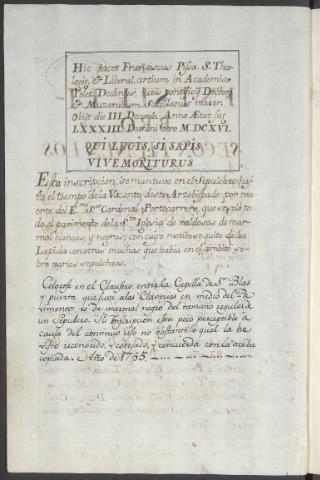 Hic jacet Franciscus Pisa. S. Theo-
logię, & Liberal. artium in Academia
Tolet. Decanus, Iuris pontificij Doctor
& Muzarabum Capellanus maior
Obijt die III Decemb. Anno Ætat. suę
LXXXIII Domini vero M DCXVI
QUI LEGIS, SI SAPIS,
VIVE MORITURUS
Esta inscripcion, se mantuvo en el Sepulchro has-
ta el tiempo de la Vacante de este Arzobispado, por mu-
erte del E.mo S.or Cardenal Portocarrero, que se quitó to-
do el pavimento de la S.ta Iglesia de valdosas de mar-
mol blancas, y negras; con cuio motibo se quitó dicha
Lapida con otras muchas que habia en el ambito so-
bre varios sepulchros.
Colocose en el Claustro entre la Capilla de S.n Blas
y puerta que sube a las Claverias en medio del Pa-
vimento es de marmol negro del tamaño regular de
un Sepulcro. Su Inscripcion esta poco perceptible á
causa del continuo uso no obstante lo qual la he
visto reconocido, y cotejado, y concuerda con la arriba
copiada. Año de 1755.